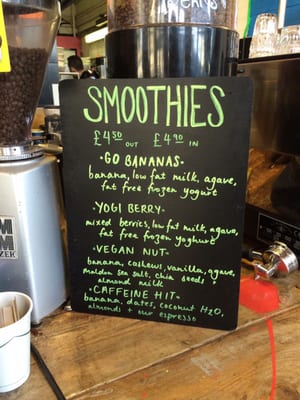 SMOOTHIES
£4.50 OUT £4.90 IN
·GO BANANAS·
banana, low fat milk, agave,
fat free frozen yogurt
·YOGI BERRY·
mixed berries, low fat milk, agave,
fat free frozen yoghurt
·VEGAN NUT·
banana, cashews, vanilla, agave,
maldon sea salt, chia seeds +
almond milk
·CAFFEINE HIT·
banana, dates, coconut H2O,
almonds + our espresso